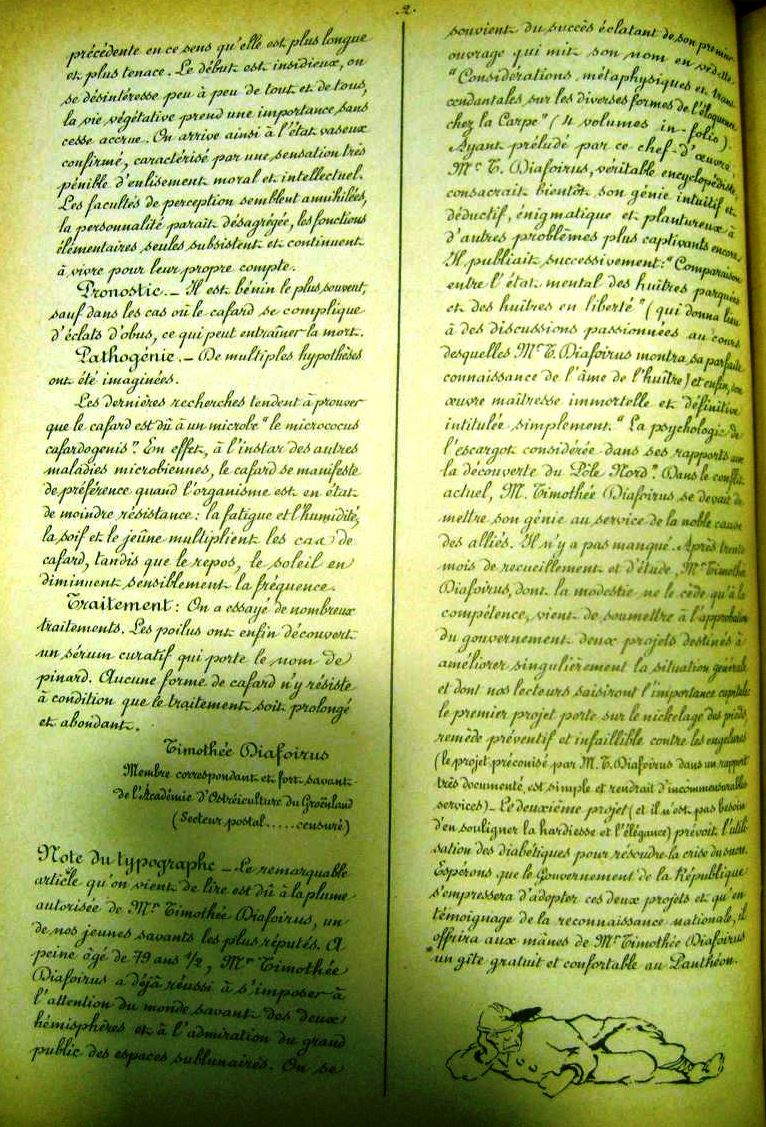 2.
précédente en ce sens qu'elle est plus longue
et plus tenace. Le début est insidieux, on
se désintéresse peu à peu de tout et de tous,
la vie végétative prend une importance sans
cesse accrue. On arrive ainsi à l'état vaseux
confirmé, caractérisé par une sensation très
pénible d'enlisement moral et intellectuel.
Les facultés de perception semblent annihilées,
la personnalité paraît désagrégée, les fonctions
élémentaires seules subsistent et continuent
à vivre pour leur propre compte.
Pronostic.— Il est bénin le plus souvent,
sauf dans les cas où le cafard se complique
d'éclats d'obus, ce qui peut entraîner la mort.
Pathogénie.— De multiples hypothèses
ont été imaginées.
Les dernières recherches tendent à prouver
que le cafard est dû à un microbe "le micrococus
cafardogenis". En effet, à l'instar des autres
maladies microbiennes, le cafard se manifeste
de préférence quand l'organisme est en état
de moindre résistance: la fatigue et l'humidité,
la soif et le jeûne multiplient les cas de
cafard, tandis que le repos, le soleil en
diminuent sensiblement la fréquence.
Traitement: On a essayé de nombreux
traitements. Les poilus ont enfin découvert
un sérum curatif qui porte le nom de
pinard. Aucune forme de cafard n'y résiste
à condition que le traitement soit prolongé
et abondant.
Timothée Diafoirus
Membre correspondant et fort savant
de l'Académie d'Ostréiculture du Groënland
(Secteur postal.....censuré)
Note du typographe — Le remarquable
article qu'on vient de lire est dû à la plume
autorisée de Mr Timothée Diafoirus, un
de nos jeunes savants les plus réputés. A
peine âgé de 79 ans 1/2, Mr Timothée
Diafoirus a déjà réussi à s'imposer à
l'attention du monde savant des deux
hémisphères et à l'admiration du grand
public des espaces sublunaires. On se
souvient du succès éclatant de son premier
ouvrage qui mit son nom en vedette
"Considérations métaphysiques et trans
cendantales sur les diverses formes de l'éloquence
chez la Carpe" (4 volumes in-folio).
Ayant préludé par ce chef-d'œuvre
Mr T. Diafoirus, véritable encyclopédiste,
consacrait bientôt son génie intuitif et
déductif, énigmatique et plantureux à
d'autres problèmes plus captivants encore.
Il publiait successivement: "Comparaison
entre l'état mental des huîtres parquées
et des huîtres en liberté" (qui donna lieu
à des discussions passionnées au cours
desquelles Mr T. Diafoirus montra sa parfaite
connaissance de l'âme de l'huître) et enfin,
œuvre maîtresse immortelle et définitive
intitulée simplement "La psychologie de
l'escargot considérée dans ses rapports avec
la découverte du Pôle Nord". Dans le conflit
actuel, M. Timothée Diafoirus se devait de
mettre son génie au service de la noble cause
des alliés. Il n'y a pas manqué. Après trente
mois de recueillement et d'étude, Mr Timothée
Diafoirus, dont la modestie ne le cède qu'à la
compétence, vient de soumettre à l'approbation
du gouvernement deux projets destinés à
améliorer singulièrement la situation générale
et dont nos lecteurs saisiront l'importance capitale:
le premier projet porte sur le nickelage des pieds,
remède préventif et infaillible contre les engelures
(le projet préconisé par M. T. Diafoirus dans un rapport
très documenté, est simple et rendrait d'incommensurables
services)— Le deuxième projet (et il n'est pas besoin
d'en souligner la hardiesse et l'élégance) prévoit l'utili-
sation des diabétiques pour résoudre la crise du sucre.
Espérons que le Gouvernement de la République
s'empressera d'adopter ces deux projets et qu'en
témoignage de la reconnaissance nationale, il
offrira aux mânes de Mr Timothée Diafoirus
un gîte gratuit et confortable au Panthéon.